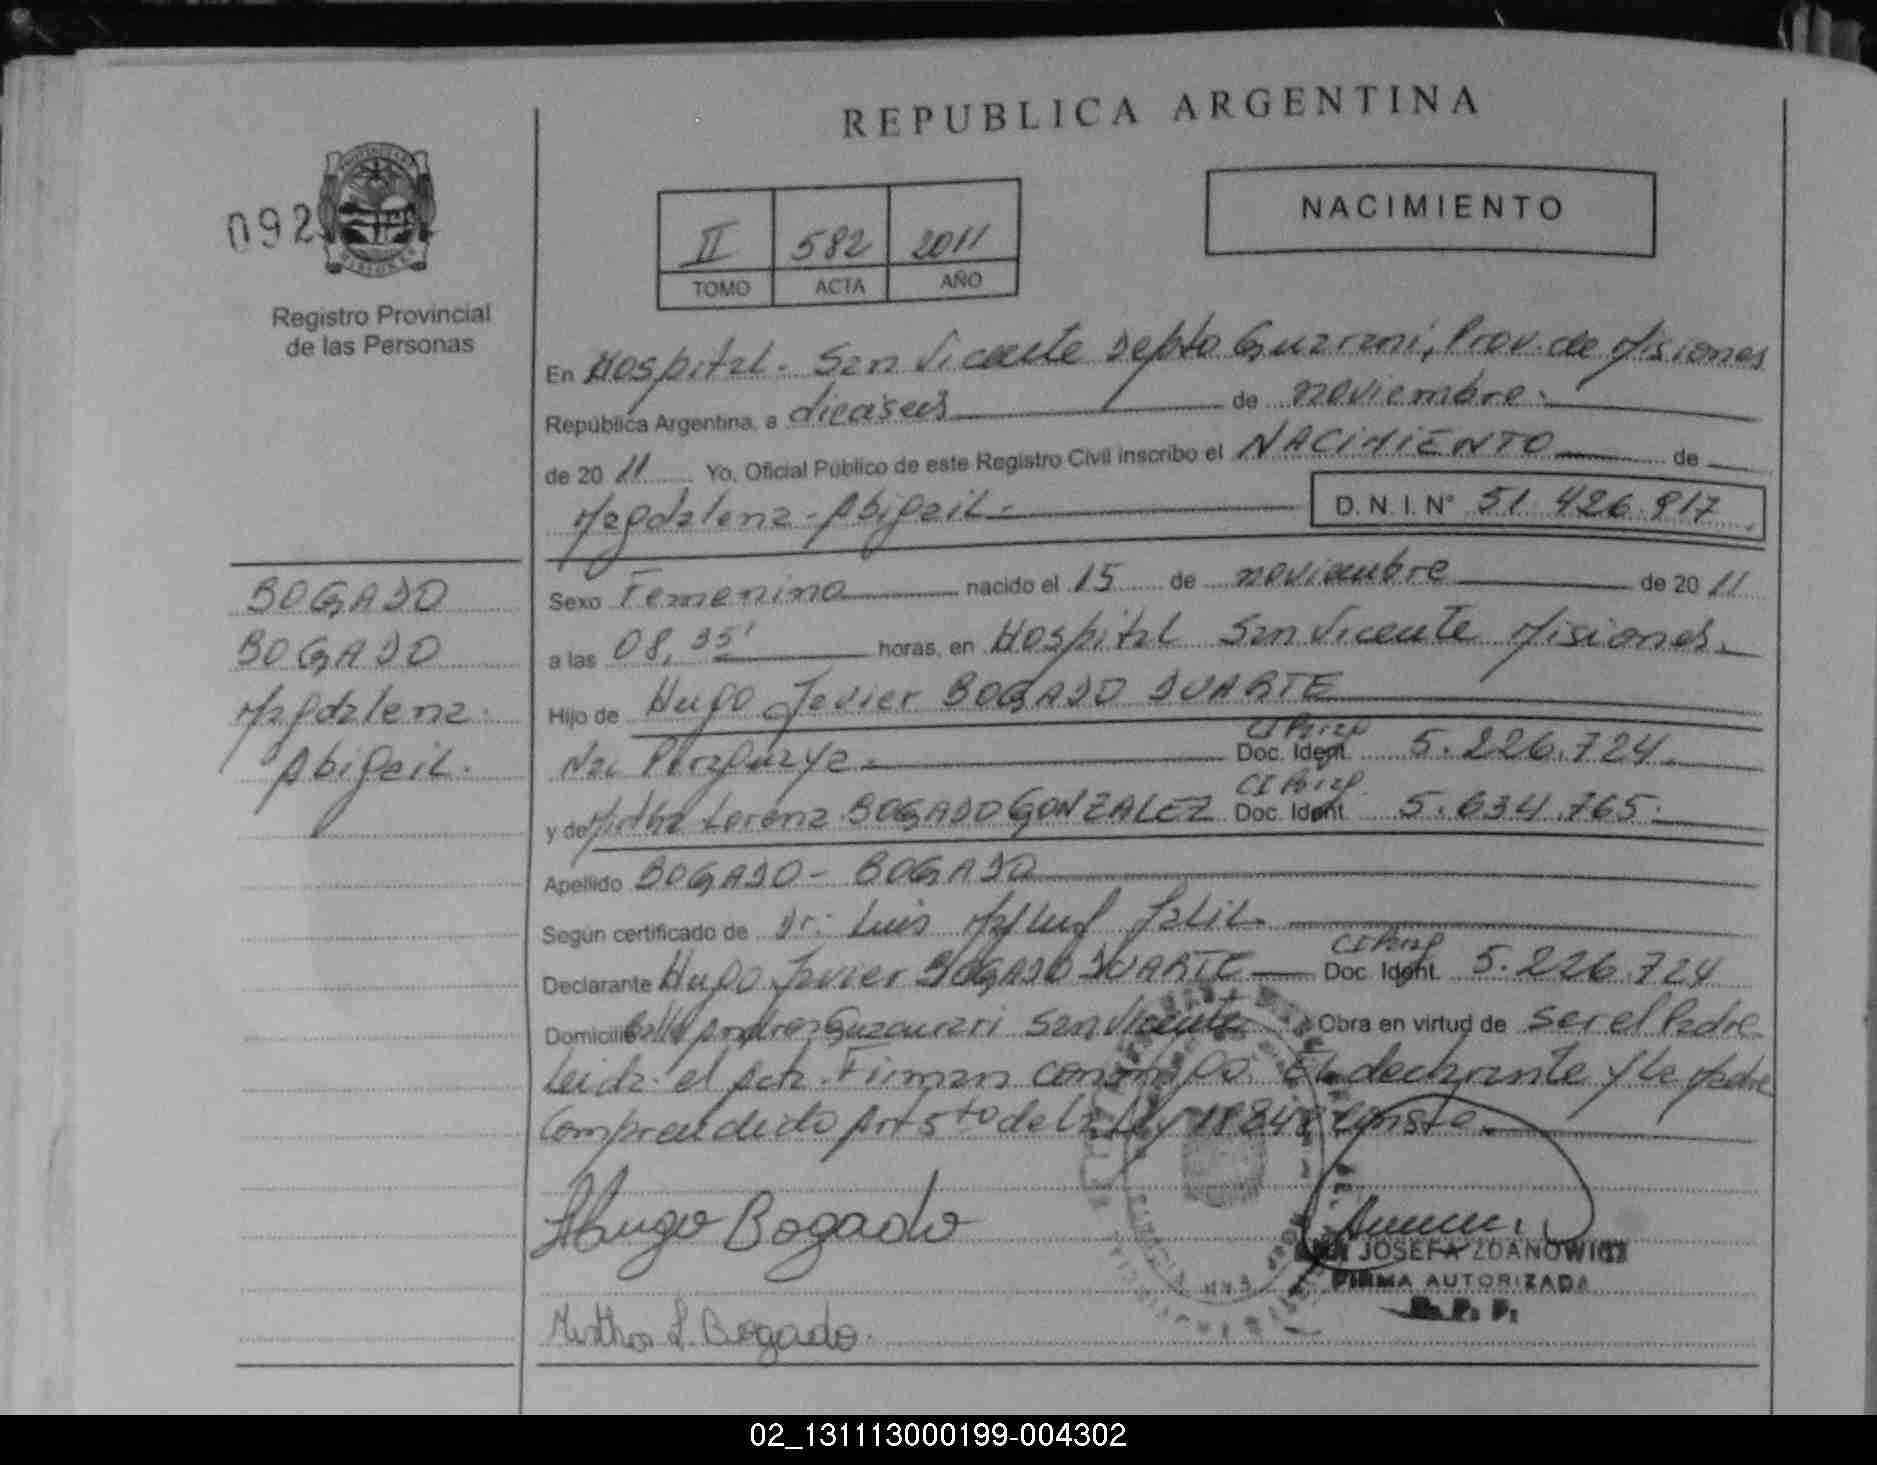 REPUBLICA ARGENTINA
092
Registro Provincial
de las Personas
II 582 2011
TOMO ACTA AÑO
NACIMIENTO
En Hospital. San Vicente Depto Guarani, Prov. de Misiones
República Argentina, a dieciseis de noviembre.
de 20 11 Yo, Oficial Público de este Registro Civil inscribo el NACIMIENTO de
Magdalena - Abigail. D.N.I.N° 51.426.917
Sexo Femenino nacido el 15 de noviembre de 20 11
a las 08,35' horas, en Hospital San Vicente Misiones.
Hijo de Hugo Javier BOGADO DUARTE
Nac Paraguaya. CI Parag Doc. Ident. 5.226.724.
y de Mirtha Lorena BOGADO GONZALEZ CI Parag. Doc. Ident. 5.634.765.
Apellido BOGADO - BOGADO
Según certificado de Dr: Luis Jalil.
Declarante Hugo Javier BOGADO DUARTE CI Parag Doc. Ident. 5.226.724
Domicilio Calle Andres Guacurari San Vicente Obra en virtud de ser el Padre
Leida el Acta. Firman conmigo. El declarante y la Madre
Comprendido Art 5to de la Ley 18248 Conste.
Hugo Bogado
JOSEFA ZDANOWICZ
FIRMA AUTORIZADA
R. P. P.
Mirtha L. Bogado.
BOGADO
BOGADO
Magdalena.
Abigail.
02_131113000199-004302